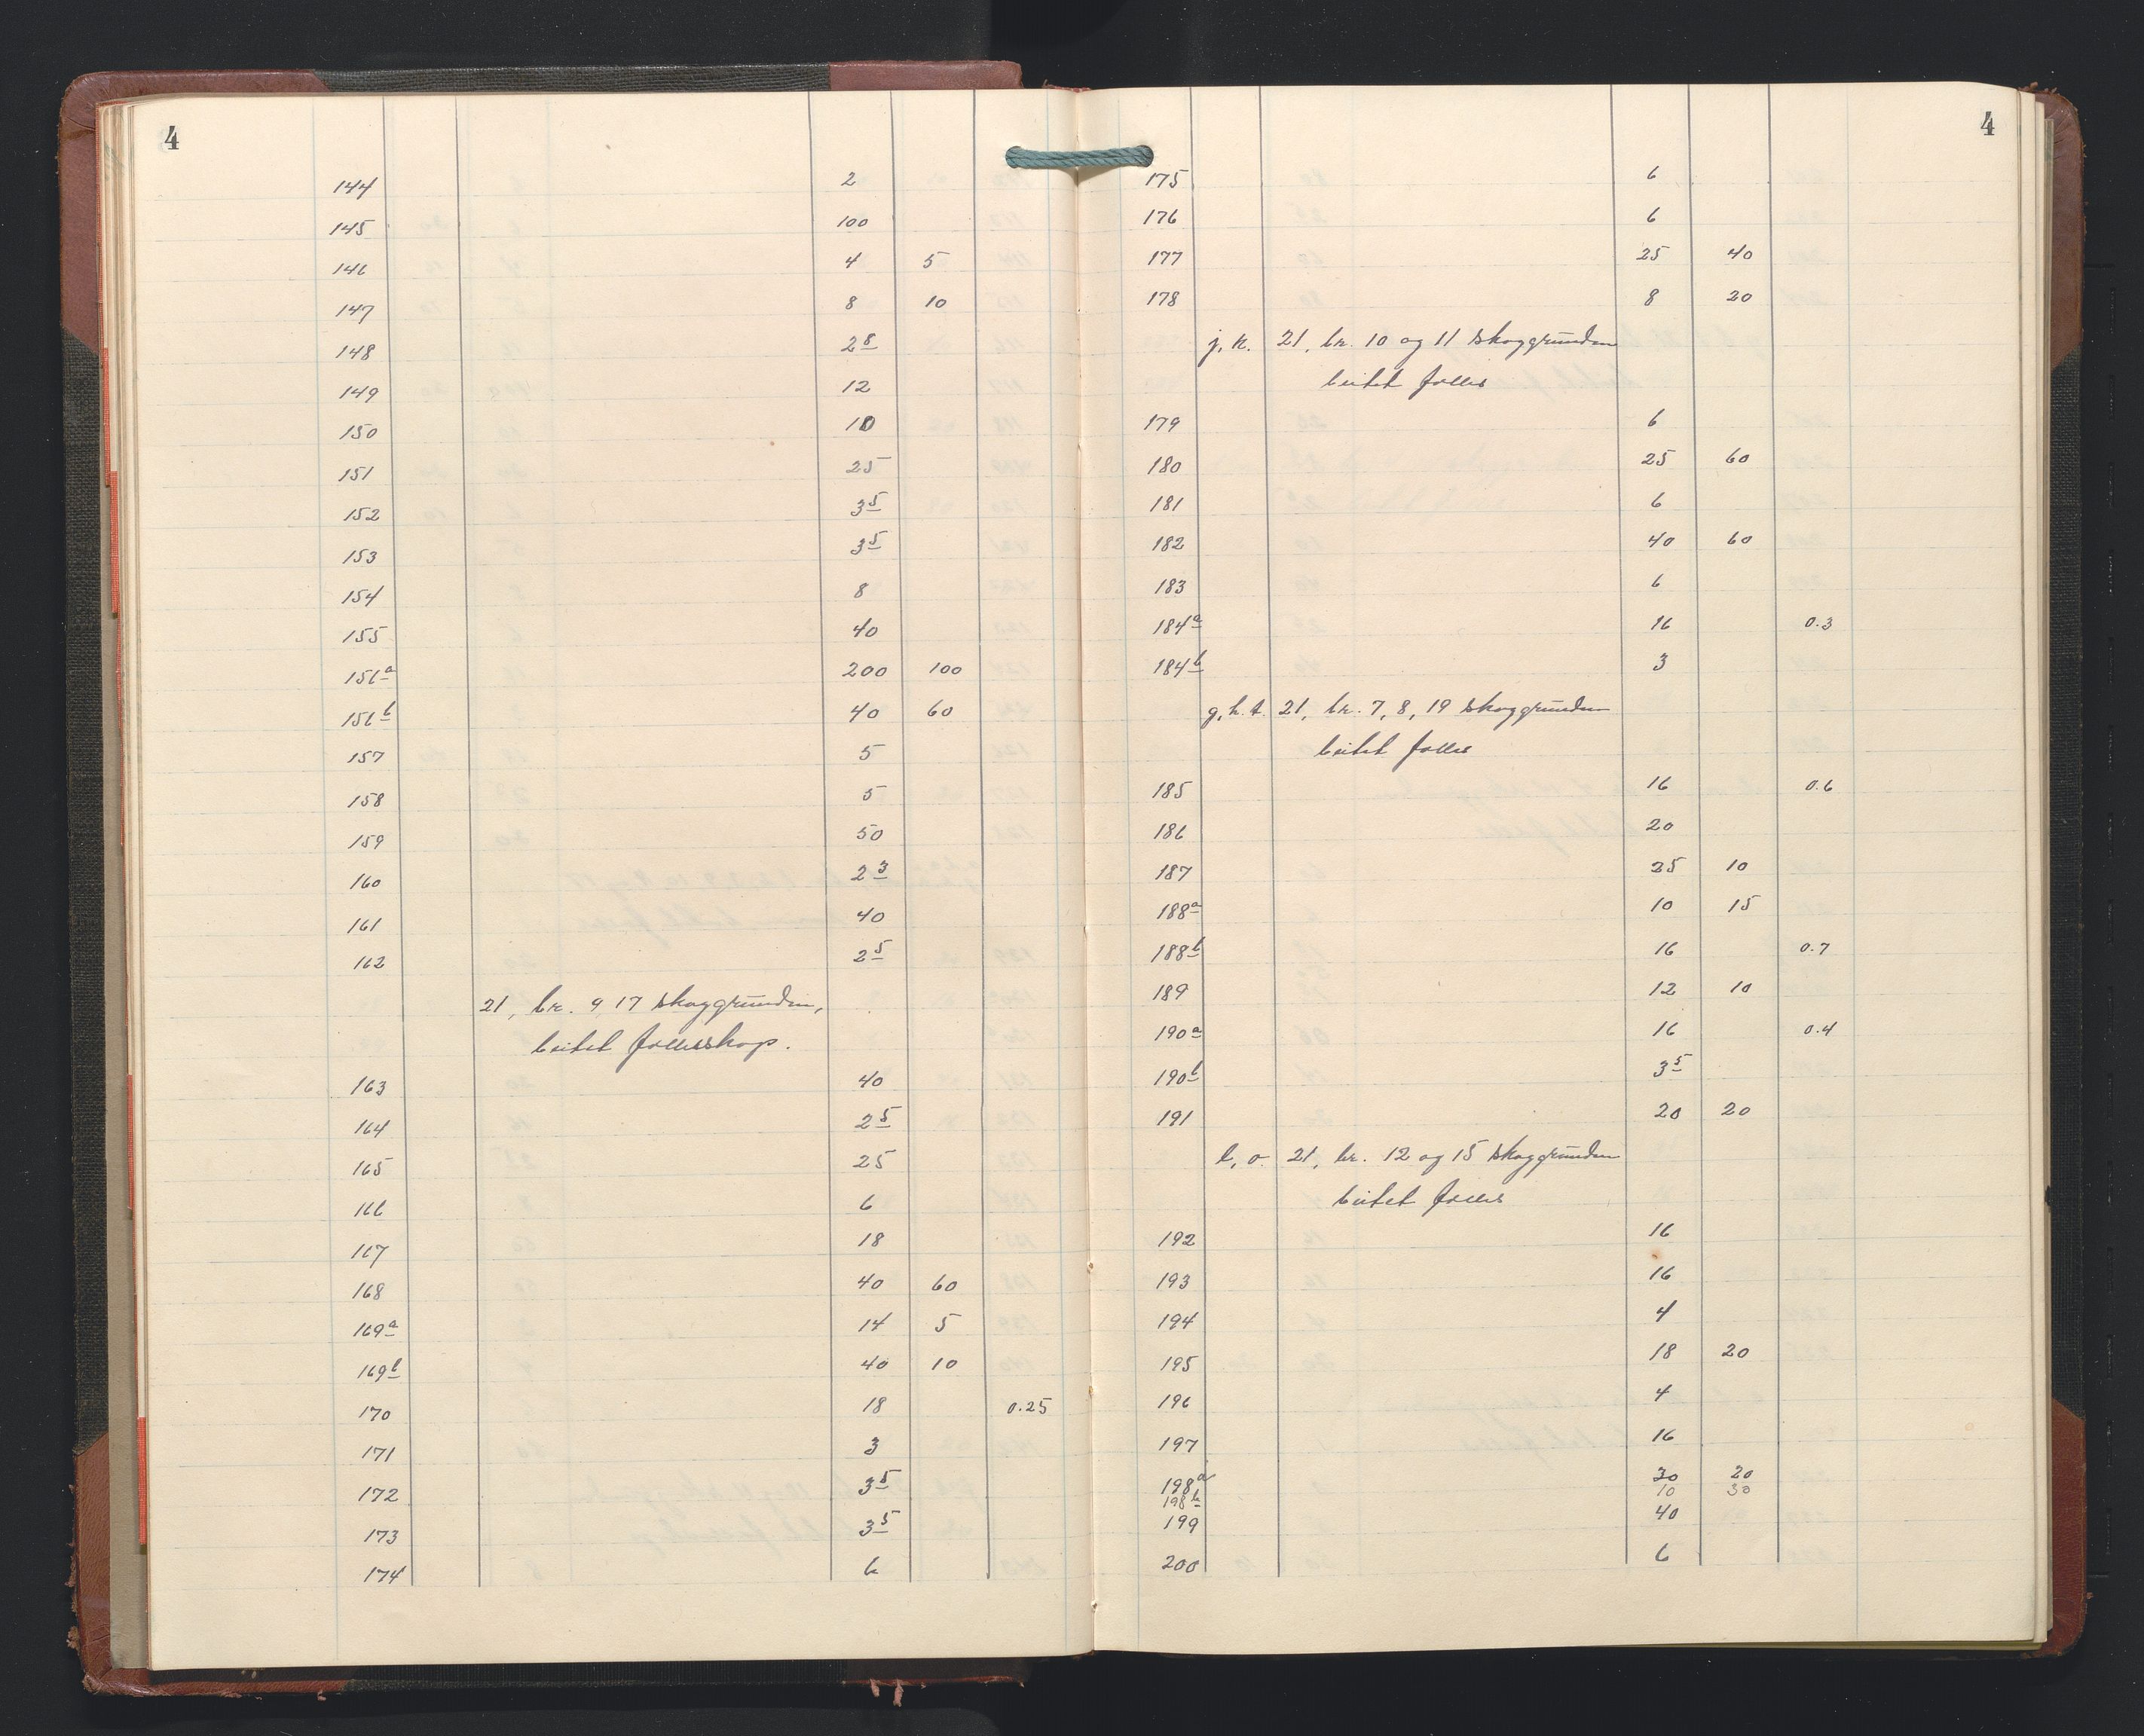 4
144 2
145 100
146 4 5
147 8 10
148 2 8
149 12
150 10
151 25
152 3 5
153 3 5
154 8
155 40
156 a 200 100
156 b 40 60
157 5
158 5
159 50
160 2 3
161 40
162 2 5
21, br. 9 17 skoggrunden,
beitet fællesskap.
163 40
164 2 5
165 25
166 6
167 18
168 40 60
169 a 14 5
169 b 40 10
170 18 0.25
171 3
172 3 5
173 3 5
174 6
4
175 6
176 6
177 25 40
178 8 20
j, k. 21, br. 10 og 11 skoggrunden
beitet fælles
179 6
180 25 60
181 6
182 40 60
183 6
184 a 16 0.3
184 b 3
g, h. t. 21, br. 7, 8, 19 skoggrunden
beitet fælles
185 16 0.6
186 20
187 25 10
188 a 10 15
188 b 16 0.7
189 12 10
190 a 16 0.4
190 b 3 5
191 20 20
l, o. 21, br. 12 og 15 skoggrunden
beitet fælles
192 16
193 16
194 4
195 18 20
196 4
197 16
198 a 30 20
198 b 10 30
199 40
200 6